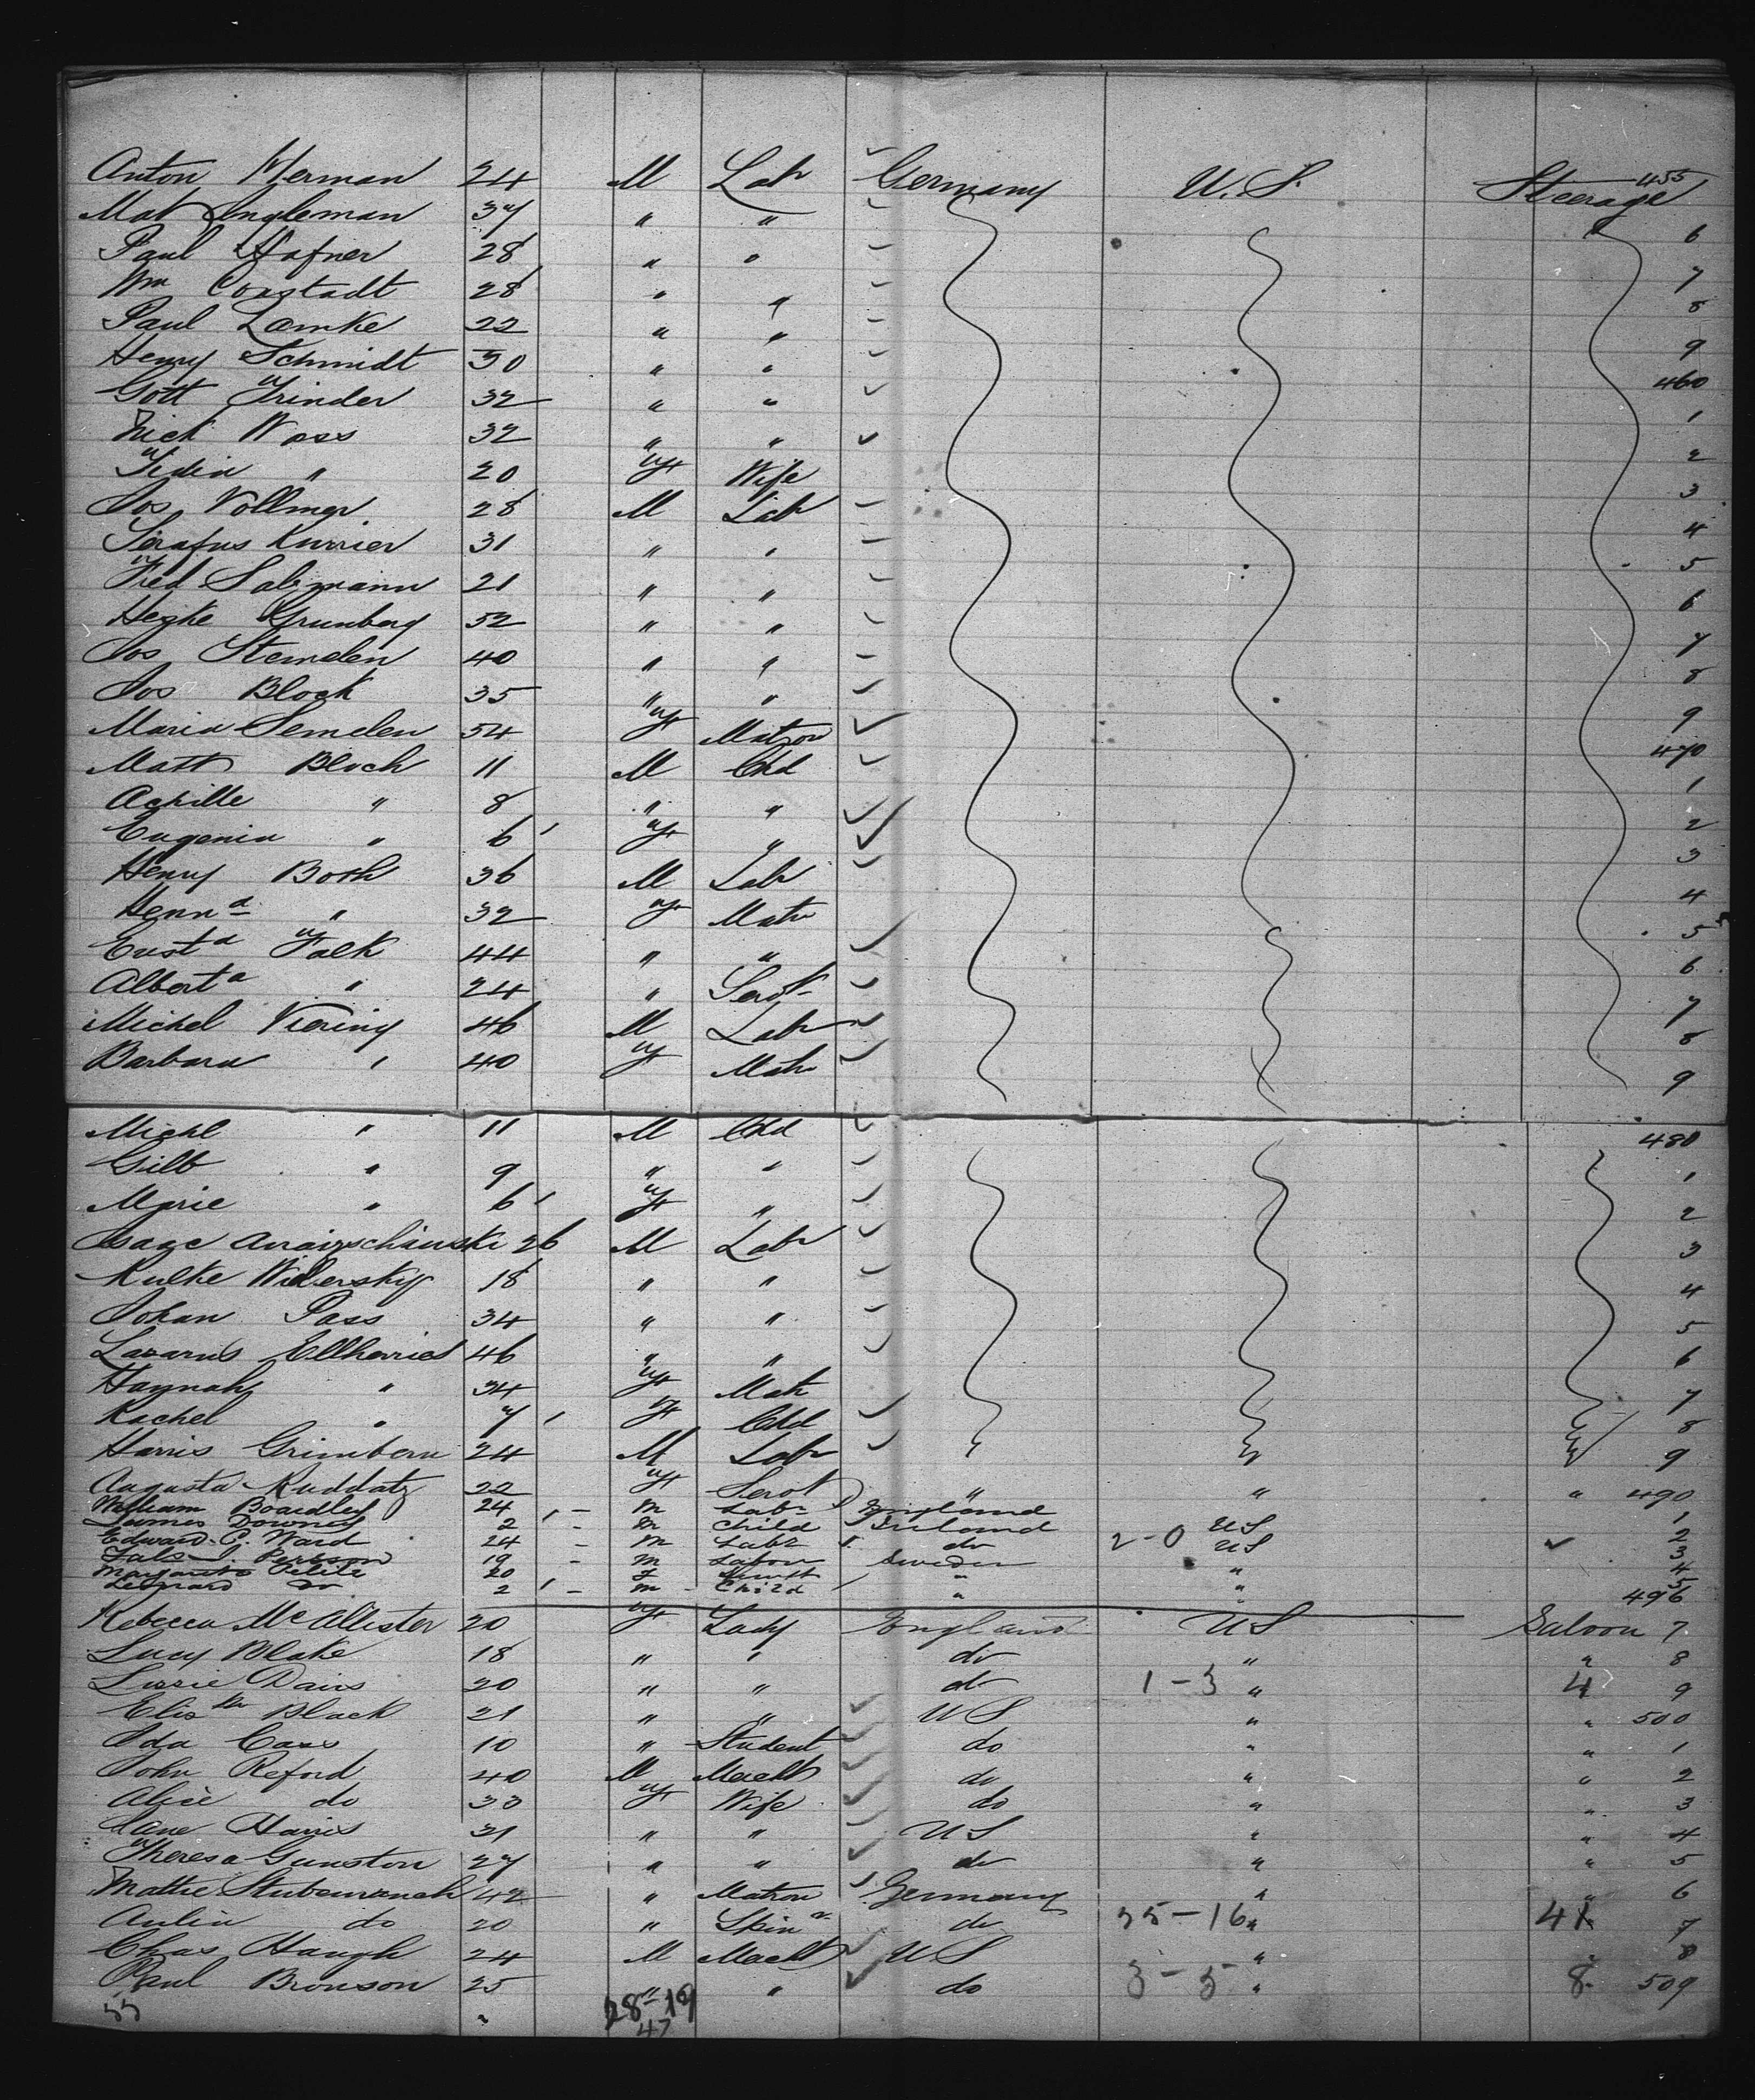 Anton Herman 24 M Labr Germany U.S. Steerage 455
Mat Ingleman 37 " " 6
Paul Hafner 28 " " 7
Wm Constadt 28 " " 8
Paul Lemke 22 " " 9
Henry Schmidt 30 " " 460
Gott Frinder 32 " " 1
Nick Wass 32 " " 2
Fedia " 20 F Wife 3
Jos Vollmer 28 M Labr 4
Serafus Kurrier 31 " " 5
Fred Salzmann 21 " " 6
Heske Grunberg 52 " " 7
Jos Stemelen 40 " " 8
Jos Block 35 " " 9
Maria Semelen 54 F Matron 470
Matt Bloch 11 M Chd 1
Achille " 8 " " 2
Eugenia " 6 F " 3
Henry Both 36 M Labr 4
Henna " 32 F Matr 5
Custa Falk 44 " " 6
Alberta " 24 " Servt 7
Michel Viering 46 M Labr 8
Barbara " 40 F Matr 9
Michl " 11 M Chd 480
Gilb " 9 " " 1
Marie " 6 F " 2
Isaac 26 M Labr 3
Kulke Widersky 18 " " 4
Johan Pass 34 " " 5
Lazarus 46 " " 6
Hannah " 34 F Matr 7
Rachel " 7 F Chd 8
Harris Grimbern 24 M Labr 9
Augusta Ruddatz 22 F Servt " " " 490
William Boardley 24 M Labr England " 1
James Downey 2 M Child Ireland US 2
Edward C. Ward 24 M Labr do 2-0 US 3
Persson 19 M Labour Sweden " 4
Margareta Pelile 20 F " " 5
Leonard Do 2 M Child " " 496
Rebecca McAllister 20 F Lady England US Saloon 7
Lucy Blake 18 " " do " " 8
Lizzie Davis 20 " " do 1-3 " 4 9
Elisth Black 21 " " US " " 500
Ida Cass 10 " Student do " " 1
John Reford 40 M Mercht do " " 2
Alice do 33 F Wife do " " 3
Jane Harris 31 " " US " " 4
Theresa Gunston 27 " " do " " 5
Mattie 42 " Matron Germany " " 6
Aulia do 20 " Spinr do 25-16 " 41 7
Chas Haugh 24 M Mercht US " " 8
Paul Bronson 25 " " do 3-5 " 8 509
55 28-19
47